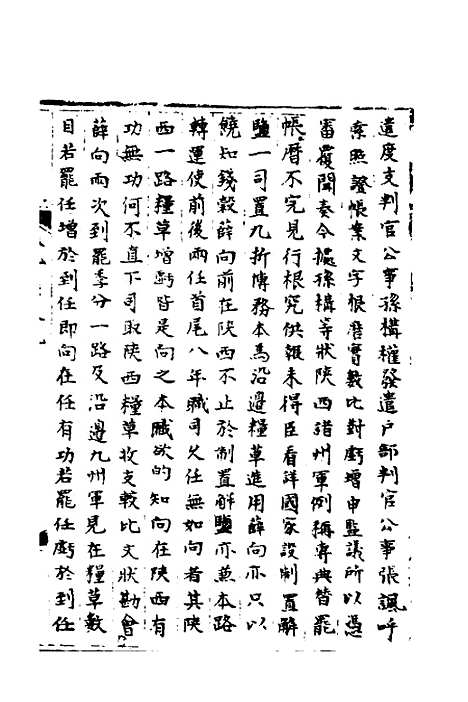 遣度支判官公事孫構權發遣户部判官公事張諷呼
索照證帳案文字帳曆實數比對虧增申監議所以憑
畨覆聞奏今據孫構等狀陝西諸州軍例稱專典皆罷
帳曆不完見行根究供報未得臣看詳國家設制置解
鹽一司置九折博務本為沿邊糧草進用薛向亦只以
饒知錢穀薛向前在陝西不止於制置解鹽亦兼本路
轉運使前後兩任首尾八年職司久任無如向者其陝
西一路糧草增虧皆是向之本職欲的知向在陝西有
功無功何不直下司取陝西糧草收支較比文狀勘會
薛向兩次到罷季分一路及沿邊九州軍見在糧草數
目若罷任增於到任即向在任有功若罷任虧於到任